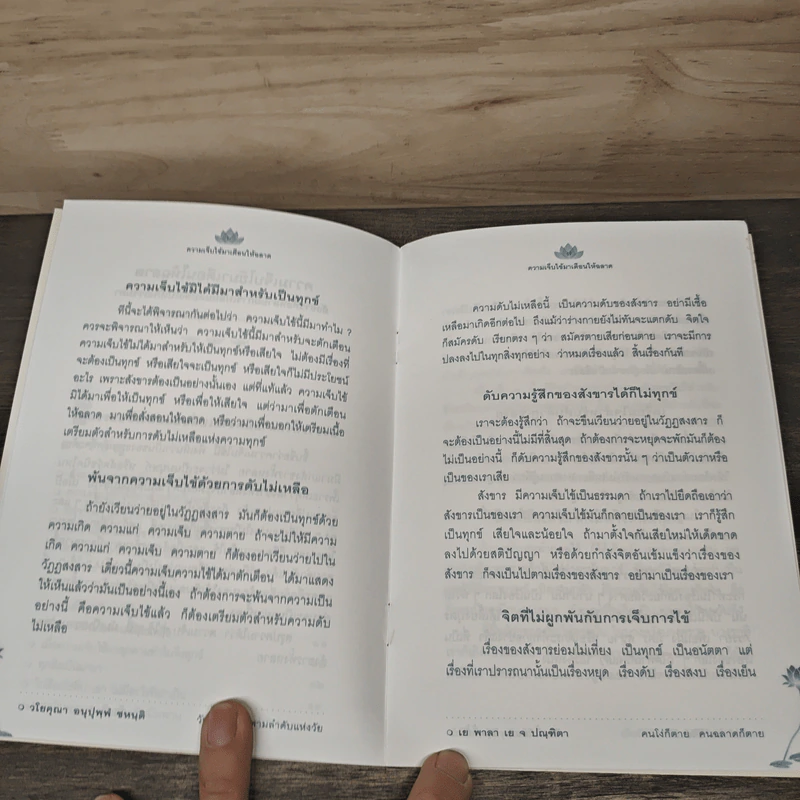 ความเจ็บไข้มาเตือนให้ฉลาด
ความเจ็บไข้มิได้มีมาสำหรับเป็นทุกข์
ทีนี้จะได้พิจารณากันต่อไปว่า ความเจ็บไข้นี้มีมาทำไม ?
ควรจะพิจารณาให้เห็นว่า ความเจ็บไข้นี้มีมาสำหรับจะตักเตือน
ความเจ็บไข้ไม่ได้มาสำหรับให้เป็นทุกข์หรือเสียใจ ไม่ต้องมีเรื่องที่
จะต้องเป็นทุกข์ หรือเสียใจจะเป็นทุกข์ หรือเสียใจก็ไม่มีประโยชน์
อะไร เพราะสังขารต้องเป็นอย่างนั้นเอง แต่ที่แท้แล้ว ความเจ็บไข้
มิได้มาเพื่อให้เป็นทุกข์ หรือเพื่อให้เสียใจ แต่ว่ามาเพื่อตักเตือน
ให้ฉลาด มาเพื่อสั่งสอนให้ฉลาด หรือว่ามาเพื่อบอกให้เตรียมเนื้อ
เตรียมตัวสำหรับการดับไม่เหลือแห่งความทุกข์
พ้นจากความเจ็บไข้ด้วยการดับไม่เหลือ
ถ้ายังเวียนว่ายอยู่ในวัฏฏสงสาร มันก็ต้องเป็นทุกข์ด้วย
ความเกิด ความแก่ ความเจ็บ ความตาย ถ้าจะไม่ให้มีความ
เกิด ความแก่ ความเจ็บ ความตาย ก็ต้องอย่าเวียนว่ายไปใน
วัฏฏสงสาร เดี๋ยวนี้ความเจ็บความไข้ได้มาตักเตือน ได้มาแสดง
ให้เห็นแล้วว่ามันเป็นอย่างนี้เอง ถ้าต้องการจะพ้นจากความเป็น
อย่างนี้ คือความเจ็บไข้แล้ว ก็ต้องเตรียมตัวสำหรับความดับ
ไม่เหลือ
วโยคุณา อนุปุพฺพํ ชหนฺติ
ตามลำดับแห่งวัย
ความเจ็บไข้มาเตือนให้ฉลาด
ความดับไม่เหลือนี้ เป็นความดับของสังขาร อย่ามีเชื้อ
เหลือมาเกิดอีกต่อไป ถึงแม้ว่าร่างกายยังไม่ทันจะแตกดับ จิตใจ
ก็สมัครดับ เรียกตรง ๆ ว่า สมัครตายเสียก่อนตาย เราจะมีการ
ปลงลงไปในทุกสิ่งทุกอย่าง ว่าหมดเรื่องแล้ว สิ้นเรื่องกันที
ดับความรู้สึกของสังขารได้ก็ไม่ทุกข์
เราจะต้องรู้สึกว่า ถ้าจะขืนเวียนว่ายอยู่ในวัฏฏสงสาร ก็
จะต้องเป็นอย่างนี้ไม่มีที่สิ้นสุด ถ้าต้องการจะหยุดจะพักมันก็ต้อง
ไม่เป็นอย่างนี้ ก็ดับความรู้สึกของสังขารนั้น ๆ ว่าเป็นตัวเราหรือ
เป็นของเราเสีย
สังขาร มีความเจ็บไข้เป็นธรรมดา ถ้าเราไปยึดถือเอาว่า
สังขารเป็นของเรา ความเจ็บไข้มันก็กลายเป็นของเรา เราก็รู้สึก
เป็นทุกข์ เสียใจและน้อยใจ ถ้ามาตั้งใจกันเสียใหม่ให้เด็ดขาด
ลงไปด้วยสติปัญญา หรือด้วยกำลังจิตอันเข้มแข็งว่าเรื่องของ
สังขาร ก็จงเป็นไปตามเรื่องของสังขาร อย่ามาเป็นเรื่องของเรา
จิตที่ไม่ผูกพันกับการเจ็บการไข้
เรื่องของสังขารย่อมไม่เที่ยง เป็นทุกข์ เป็นอนัตตา แต่
เรื่องที่เราปรารถนานั้นเป็นเรื่องหยุด เรื่องดับ เรื่องสงบ เรื่องเย็น
เย พาลา เย จ ปณฺฑิตา
คนโง่ก็ตาย คนฉลาดก็ตาย